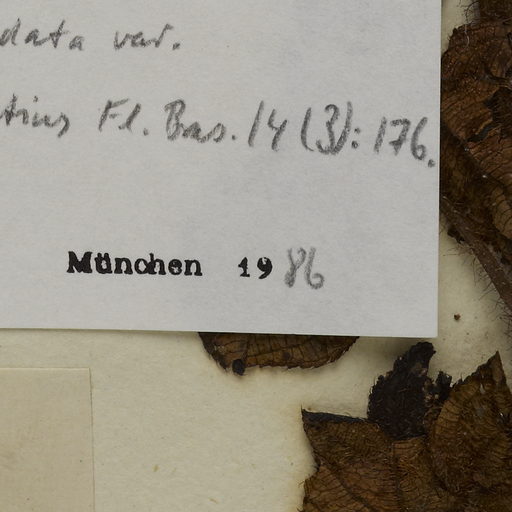 data var.
tius Fl. Bras. 14 (3): 176.
München 1986